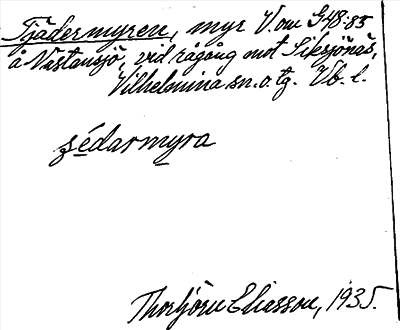 Tjädermyren, myr V. om G48:85
å Västansjö, vid rågång mot Siksjönäs,
Vilhelmina sn. o. tg. Vb. l.
s̯édarmyra
Thorbjörn Eliasson, 1935.